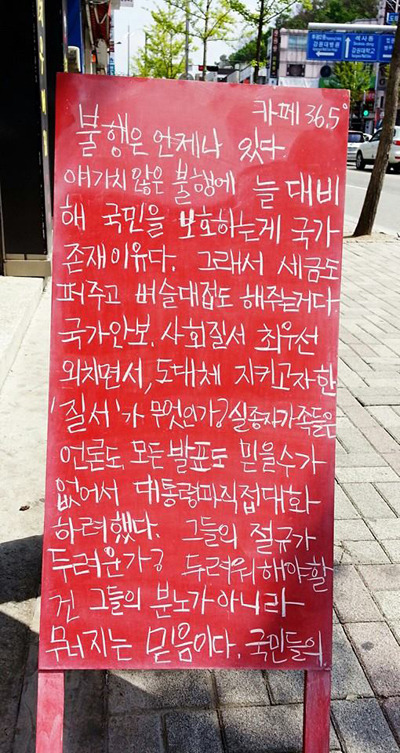 카페 36.5°
불행은 언제나 있다.
얘기치 않은 불행에 늘 대비
해 국민을 보호하는게 국가
존재이유다. 그래서 세금도
퍼주고 벼슬대접도 해주는거다.
국가안보. 사회질서 최우선
외치면서, 도대체 지키고자한
'질서'가 무엇인가? 실종자가족들은
언론도 모든 발표도 믿을수가
없어서 대통령과직접대화
하려했다. 그들의 절규가
두려운가? 두려워해야할
건 그들의 분노가아니라
무너지는 믿음이다. 국민들의
강원대병원
강원대학교